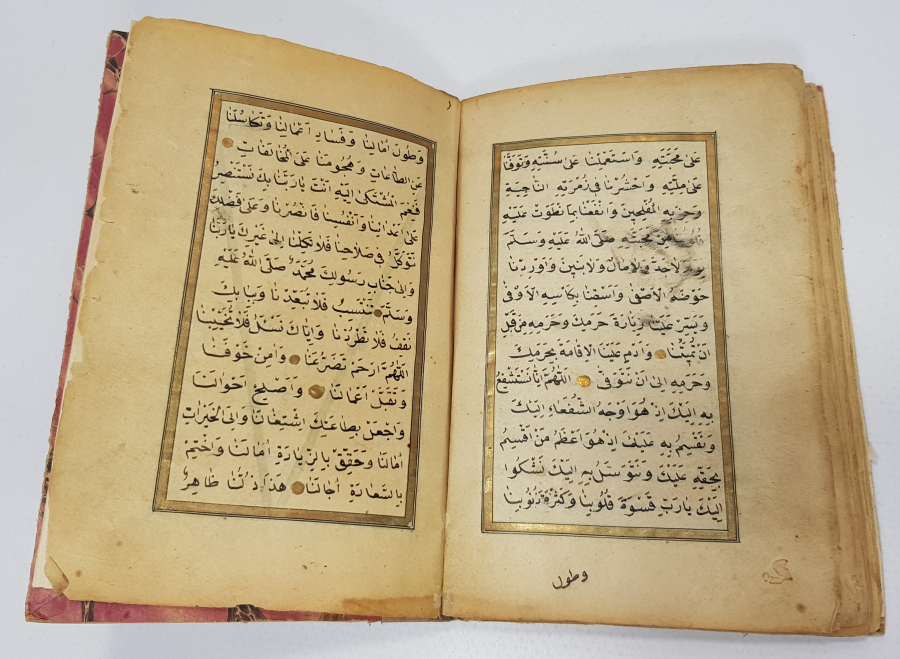 عَلىٰ مَحَبَّتِهِ وَاسْتَعْمِلْنَا عَلىٰ سُنَّتِهِ وَتَوَفَّنَا
عَلىٰ مِلَّتِهِ وَاحْشُرْنَا فِي زُمْرَتِهِ النَّاجِيَةِ
وَحِزْبِهِ الْمُفْلِحِينَ وَانْفَعْنَا بِمَا نْطَوَتْ عَلَيْهِ
مِنْ مَحَبَّتِهِ صَلَّى اللهُ عَلَيْهِ وَسَلَّمَ
يوم لَاجَدَّ وَلَامَالَ وَلَابَنِينَ وَاَوْرِدْنَا
حَوْضَهُ الْاَصْفٰى وَاَسْقِنَا بِكَاسِهِ الْاَوْفٰى
وَيَسِّرْ عَلَيْنَا زِيَارَةَ حَرَمِكَ وَحَرَمِهِ مِنْ قَبْلِ
اَنْ تُمِيتَنَا وَاَدِمْ عَلَيْنَا الْاِقَامَةَ بِحَرَمِكَ
وَحَرَمِهِ اِلٰى اَنْ نَتَوَفّٰى اَللّٰهُمَّ اِنَّا نَسْتَشْفِعُ
بِهِ اِلَيْكَ اِذْ هُوَ اَوْجَهُ الشُّفَعَاءِ اِلَيْكَ
وَنُقْسِمُ بِهِ عَلَيْكَ اِذْ هُوَ اَعْظَمُ مَنْ اُقْسِمَ
بِحَقِّهِ عَلَيْكَ وَنَتَوَسَّلُ بِهِ اِلَيْكَ نَشْكُوا
اِلَيْكَ يَارَبِّ قَسْوَةَ قُلُوبِنَا وَكَثْرَةَ ذُنُوبِنَا
وطول
وَطُولَ اٰمَالِنَا وَفَسَادَ اَعْمَالِنَا وَتَكَاسُلَنَا
عَنِ الطَّاعَاتِ وَهُجُومَنَا عَلَى الْمُخَالَفَاتِ
فَنِعْمَ الْمُشْتَكٰى اِلَيْهِ اَنْتَ يَارَبَّنَا بِكَ نَسْتَنْصِرُ
عَلىٰ اَعْدَائِنَا وَاَنْفُسِنَا فَانْصُرْنَا وَعَلىٰ فَضْلِكَ
نَتَوَكَّلُ فِي صَلَاحِنَا فَلَا تَكِلْنَا اِلٰى غَيْرِكَ يَارَبَّنَا
وَاِلٰى جَنَابِ رَسُولِكَ مُحَمَّدٍ صَلَّى اللهُ عَلَيْهِ
وَسَلَّمَ نَنْتَسِبُ فَلَا تُبَعِّدْنَا وَبِبَابِكَ
نَقِفُ فَلَا تَطْرُدْنَا وَاِيَّاكَ نَسْئَلُ فَلَا تُخَيِّبْنَا
اَللّٰهُمَّ ارْحَمْ تَضَرُّعَنَا وَاٰمِنْ خَوْفَنَا
وَتَقَبَّلْ اَعْمَالَنَا وَاَصْلِحْ اَحْوَالَنَا
وَاجْعَلْ بِطَاعَتِكَ اِشْتِغَالَنَا وَاِلَى الْخَيْرَاتِ
اٰمَالَنَا وَحَقِّقْ بِالزِّيَادَةِ اٰمَالَنَا وَاخْتِمْ
بِالسَّعَادَةِ اٰجَالَنَا هٰذَا ذُلُّنَا ظَاهِرٌ